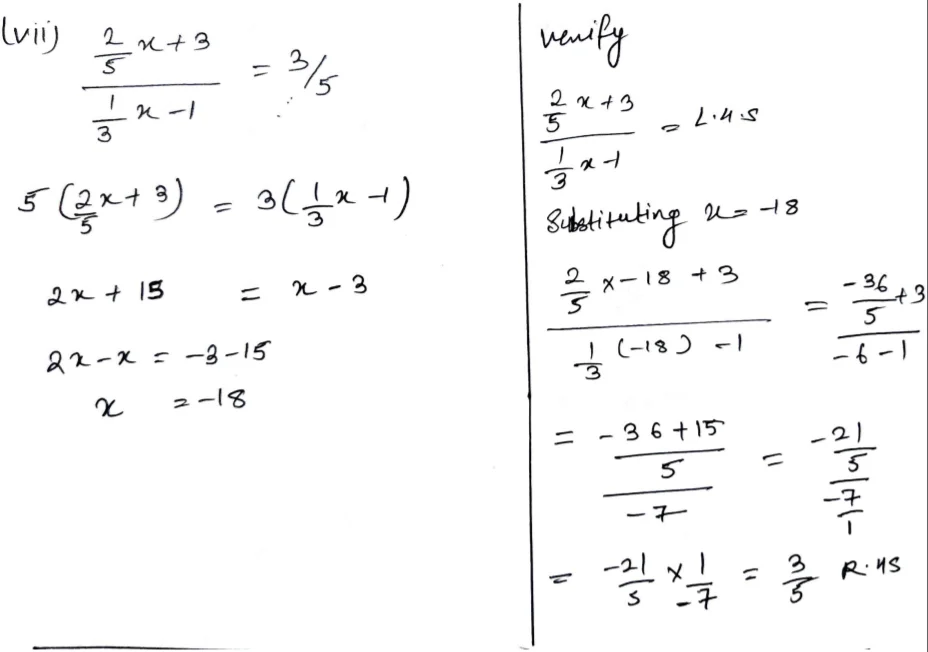 (vii) (2/5 x + 3)/(1/3 x - 1) = 3/5
5(2/5 x + 3) = 3(1/3 x - 1)
2x + 15 = x - 3
2x - x = -3 - 15
x = -18
verify
(2/5 x + 3)/(1/3 x - 1) = L.H.S
Substituting x = -18
(2/5 × -18 + 3)/(1/3 (-18) - 1) = (-36/5 + 3)/(-6 - 1)
= ((-36 + 15)/5)/(-7) = (-21/5)/(-7/1)
= -21/5 × 1/-7 = 3/5 R.HS